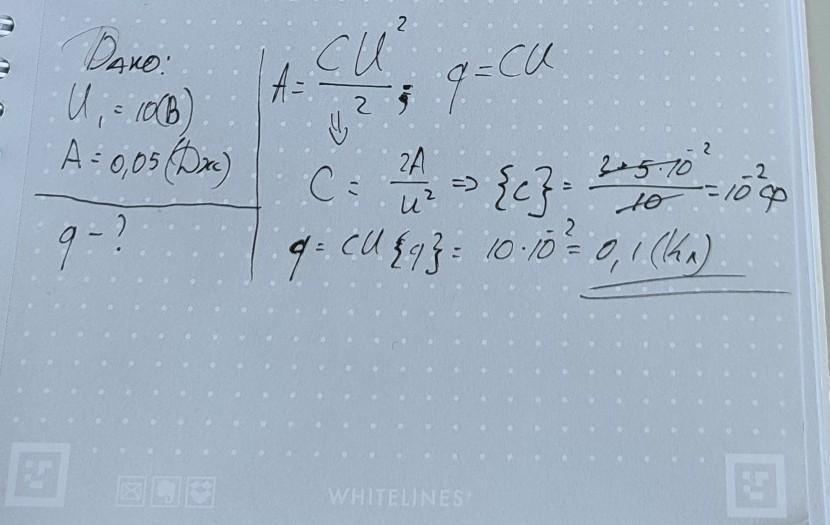 Дано:
U₁ = 10(В)
A = 0,05(Дж)
q - ?
A = CU²/2 ; q = CU
⇓
C = 2A/U² => {C} = 2·5·10⁻²/10 = 10⁻² Ф
q = CU {q} = 10·10⁻² = 0,1 (Кл)
WHITELINES